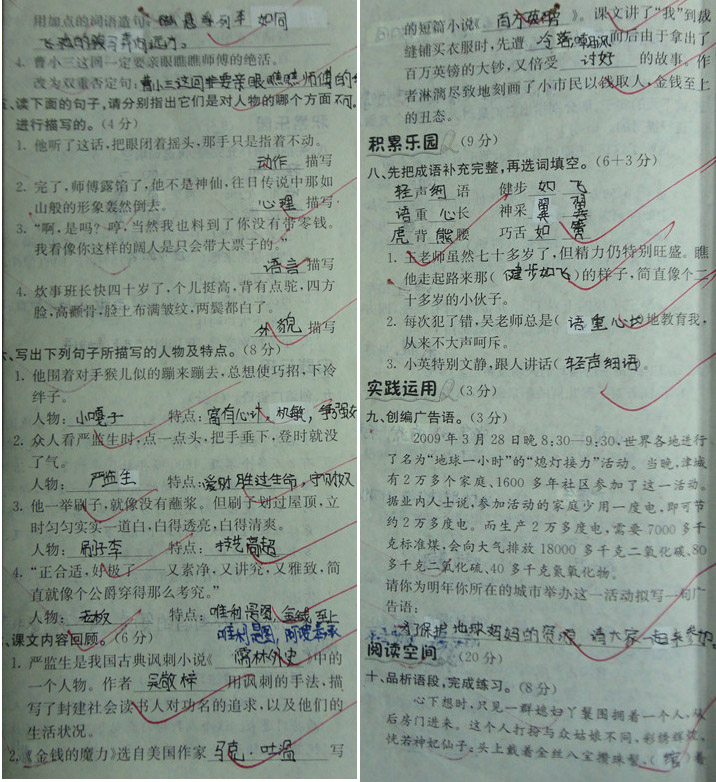 用加点的词语造句:
4. 曹小三这回一定要亲眼瞧瞧师傅的绝活。
改为双重否定句:曹小三这回非要亲眼瞧瞧师傅的
五、读下面的句子,请分别指出它们是对人物的哪个方面
进行描写的。(4分)
1. 他听了这话,把眼闭着摇头,那手只是指着不动。
动作 描写
2. 完了,师傅露馅了,他不是神仙,往日传说中那如
山般的形象轰然倒去。 心理 描写
3. “啊,是吗?哼,当然我也料到了你没有带零钱。
我看像你这样的阔人是只会带大票子的。”
语言 描写
4. 炊事班长快四十岁了,个儿挺高,背有点驼,四方
脸,高颧骨,脸上布满皱纹,两鬓都白了。
外貌 描写
六、写出下列句子所描写的人物及特点。(8分)
1. 他围着对手猴儿似的蹦来蹦去,总想使巧招,下冷
绊子。
人物:小嘎子 特点:富有心计,机敏,争强好
2. 众人看严监生时,点一点头,把手垂下,登时就没
了气。
人物:严监生 特点:爱财胜过生命,守财奴
3. 他一举刷子,就像没有蘸浆。但刷子划过屋顶,立
时匀匀实实一道白,白得透亮,白得清爽。
人物:刷子李 特点:技艺高超
4. “正合适,好极了——又素净,又讲究,又雅致,简
直就像个公爵穿得那么考究。”
人物:老板 特点:唯利是图,金钱至上
唯利是图,阿谀奉承
七、课文内容回顾。(6分)
1. 严监生是我国古典讽刺小说《 儒林外史 》中的
一个人物。作者 吴敬梓 用讽刺的手法,描
写了封建社会读书人对功名的追求,以及他们的
生活状况。
2. 《金钱的魔力》选自美国作家 马克·吐温 写
的短篇小说《 百万英镑 》。课文讲了“我”到裁
缝铺买衣服时,先遭 冷落 而后由于拿出了
百万英镑的大钞,又倍受 讨好 的故事。作
者淋漓尽致地刻画了小市民以钱取人,金钱至上
的丑态。
积累乐园 (9分)
八、先把成语补充完整,再选词填空。(6+3分)
轻声细语 健步如飞
语重心长 神采翼翼
虎背熊腰 巧舌如簧
1. 王老师虽然七十多岁了,但精力仍特别旺盛。瞧
他走起路来那( 健步如飞 )的样子,简直像个二
十多岁的小伙子。
2. 每次犯了错,吴老师总是( 语重心长 地教育我,
从来不大声呵斥。
3. 小英特别文静,跟人讲话( 轻声细语 )。
实践运用 (3分)
九、创编广告语。(3分)
2009年3月28日晚8:30—9:30,世界各地进行
了名为“地球一小时”的“熄灯接力”活动。当晚,津城
有2万多个家庭、1600多年社区参加了这一活动。
据业内人士说,参加活动的家庭少用一度电,即可节
约2万多度电。而生产2万多度电,需要7000多千
克标准煤,会向大气排放18000多千克二氧化碳、80
多千克二氧化硫、40多千克氮氧化物。
请你为明年你所在的城市举办这一活动拟写一句广
告语:
为保护地球妈妈的资源 请大家一起来参加
阅读空间 (20分)
十、品析语段,完成练习。(8分)
心下想时,只见一群媳妇丫鬟围拥着一个人,从
后房门进来。这个人打扮与众姑娘不同,彩绣辉煌,
恍若神妃仙子。头上戴着金丝八宝攒珠髻,( 绾 )着